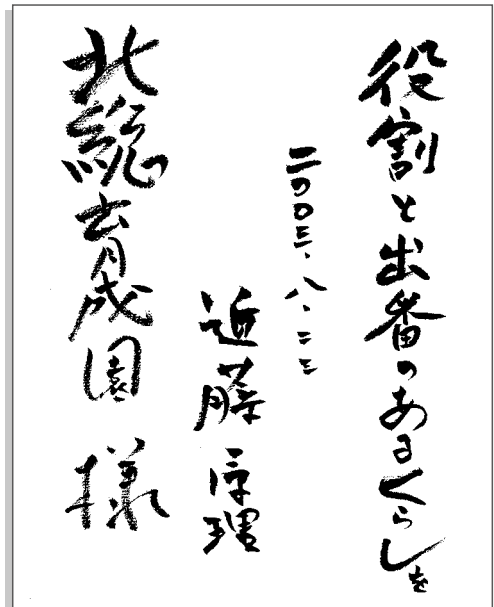 役割と出番のあるくらしを
二〇〇三、八、二三
近藤原理
北総育成園 様